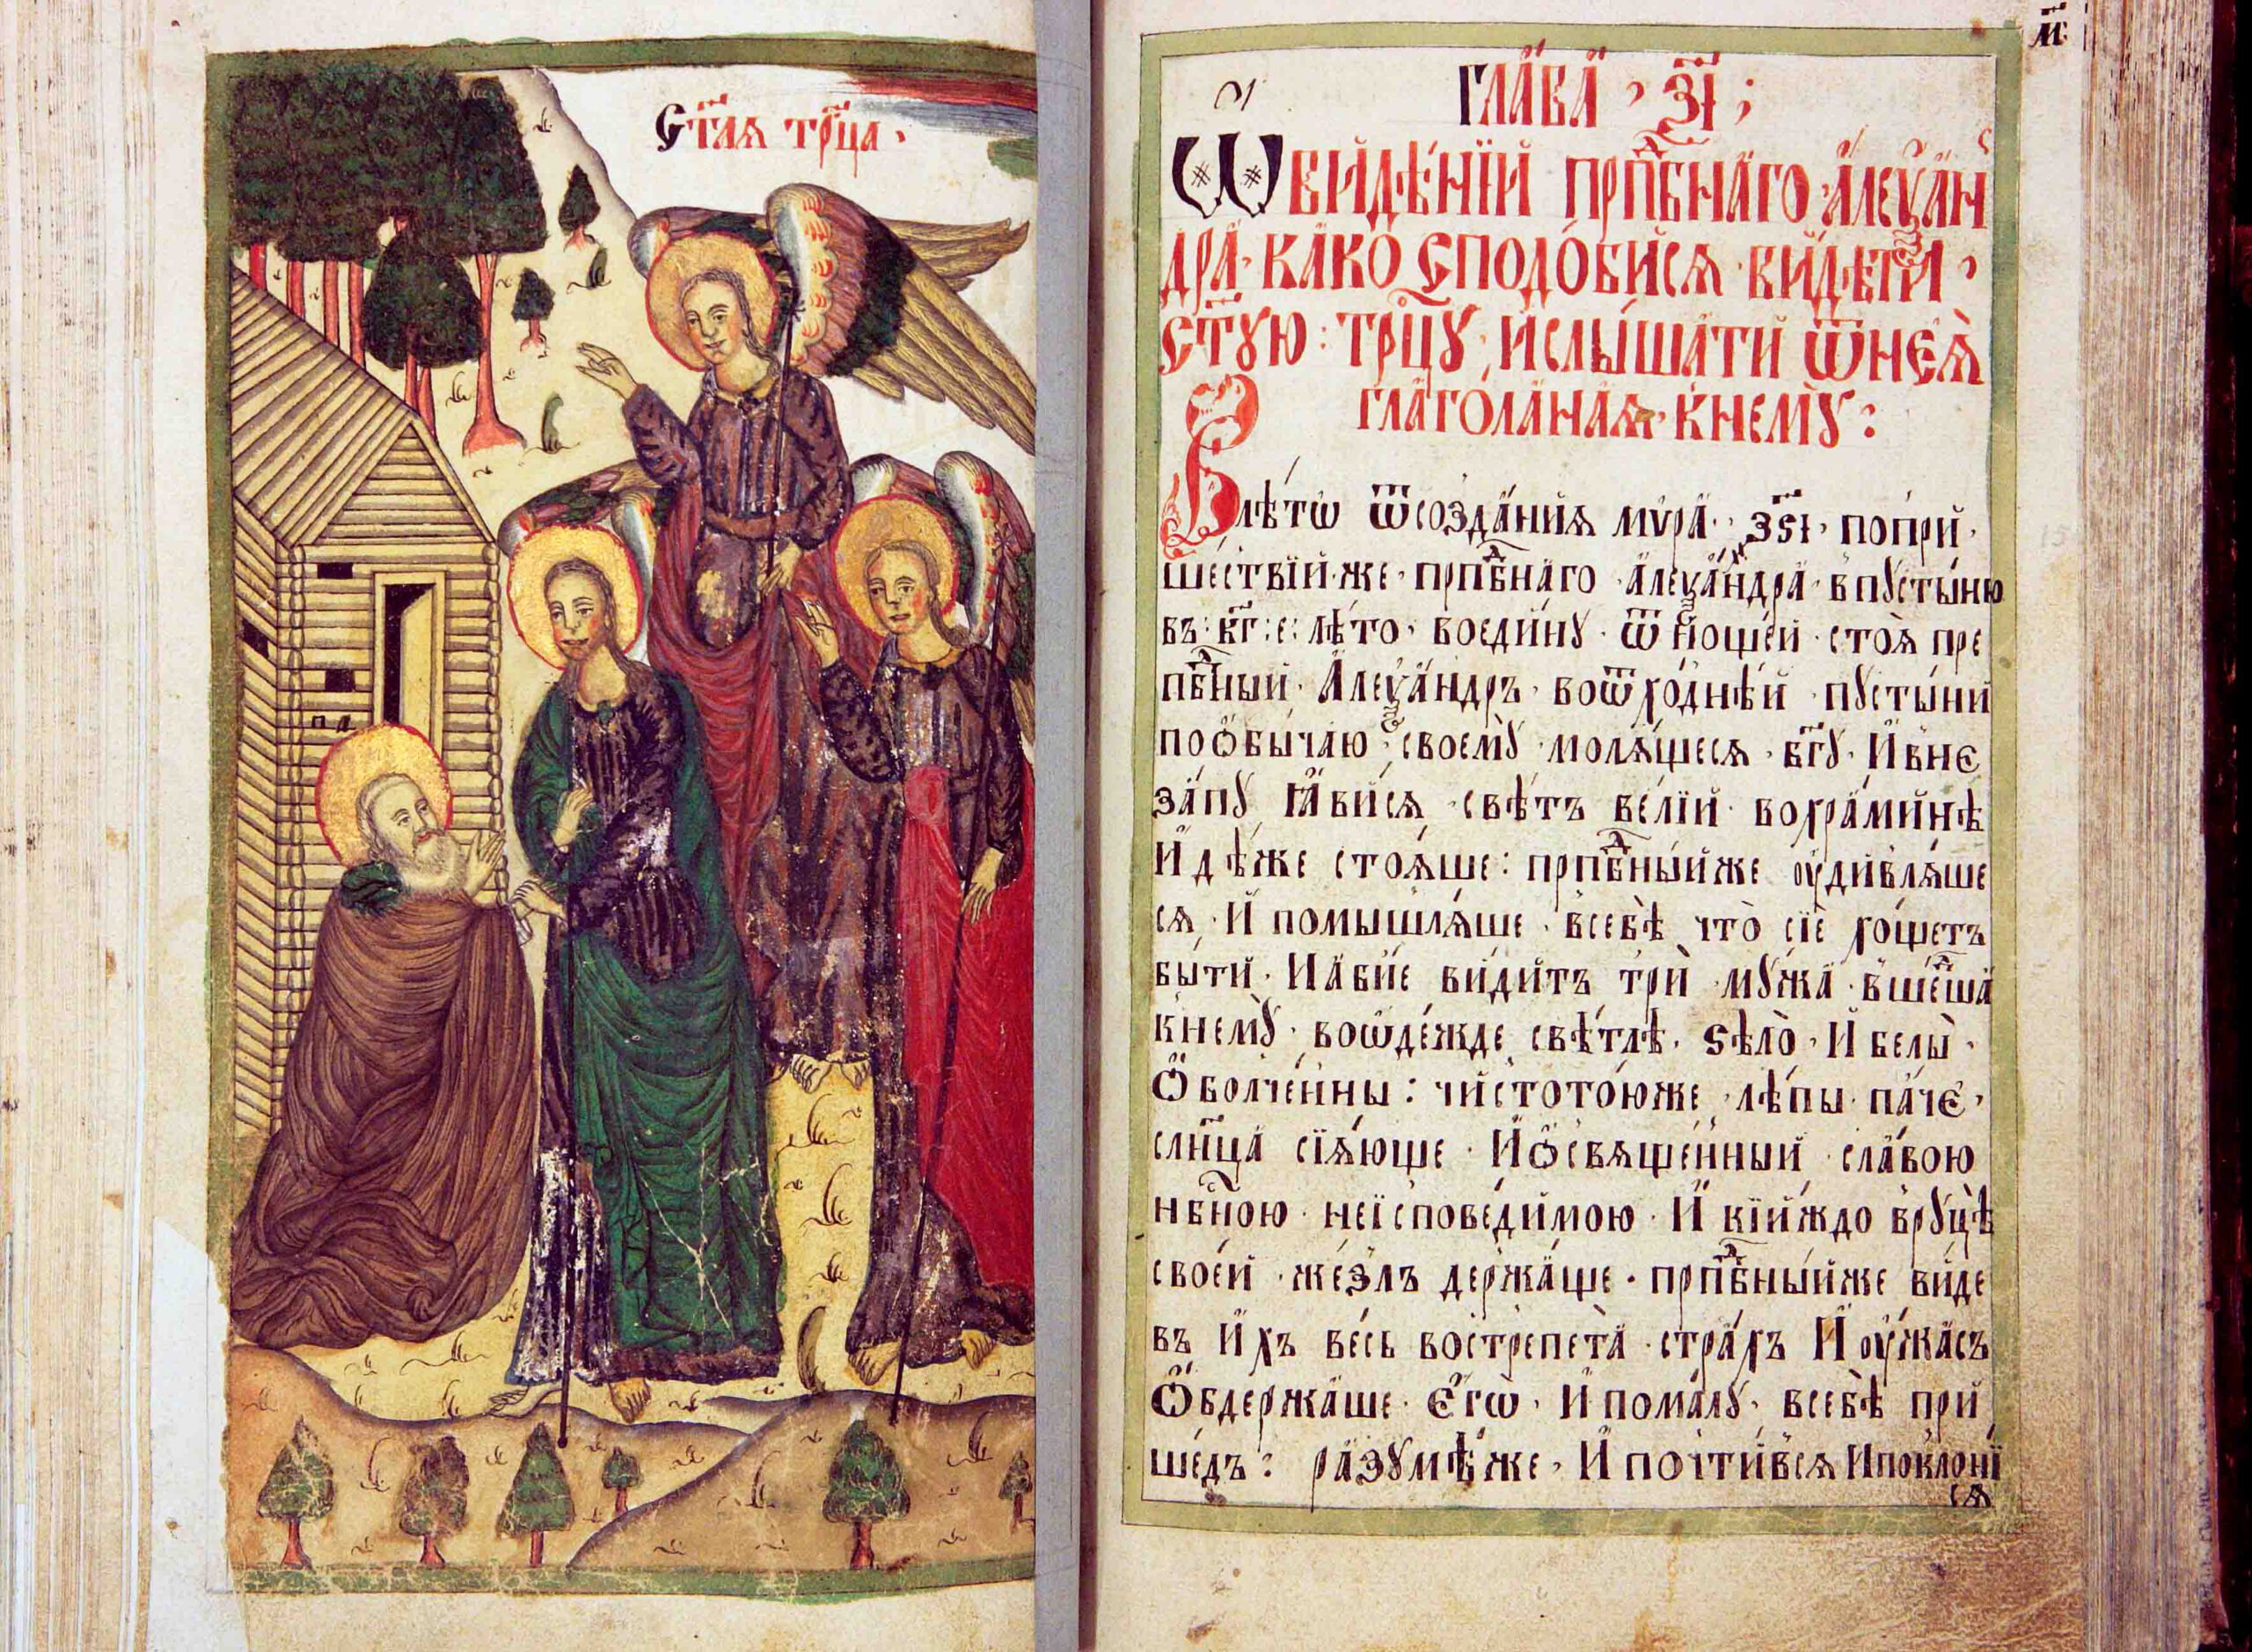 Ст҃ая трⷪ҇ца ·
м҃
гла́ва̀ , з҃і ;
Ѡ видѣ́нїи прпⷣбнаго алеѯан
дра · како сподо́бися · ви́дѣти ,
ст҃ꙋю : трⷪ҇цꙋ , и слы́шати ѿ нєя̀
глаго́ланая · к нємꙋ̀ :
В лѣ́тѡ ѿ созда́ния мѵ́ра · , зѕ҃і · по при́ ·
шествїи же · прпⷣбнаго · алеѯа́ндра · в пꙋсты́ню
въ : к҃г : е : лѣ́то · во еди́нꙋ · ѿ ноще́й · стоя̀ пре
пⷣбный · Алеѯа́ндръ · во ѿхо́днѣй · пꙋсты́ни
по ѻбы́чаю , своемꙋ̀ · моля́щеся · бг҃ꙋ · И вне
за́пꙋ ꙗви́ся · свѣ́тъ ве́лїй · во хра́минѣ
идѣ́же стоя́ше : прпⷣбный же ᲂудивля́ше
ся · И помышля́ше · в себѣ̀ что̀ сїѐ хо́щетъ
быти · И абие ви́дитъ трѝ мꙋ́жа · вше́ⷣша
к немꙋ̀ · во ѡде́жде свѣ́тлѣ · ѕѣло̀ · И белы̀ ·
Ѻболче́нны : чистото́ю же , лѣ́пы па́че ·
слн҃ца сїя́юще · И ѻсвяще́нный · сла́вою
нбⷭ҇ною · неїсповеди́мою · И кїи́ждо в рꙋцѣ̀
свое́й · же́злъ держа́ще · прпⷣбный же ви́де
въ и́хъ ве́сь вострепета̀ · стра́хъ И ᲂужасъ
Ѻбдержа́ше · Єгѡ̀ · И пома́лꙋ · в себѣ̀ при
ше́дъ : разꙋмѣ́ же · И почти́вся И поклони
ся